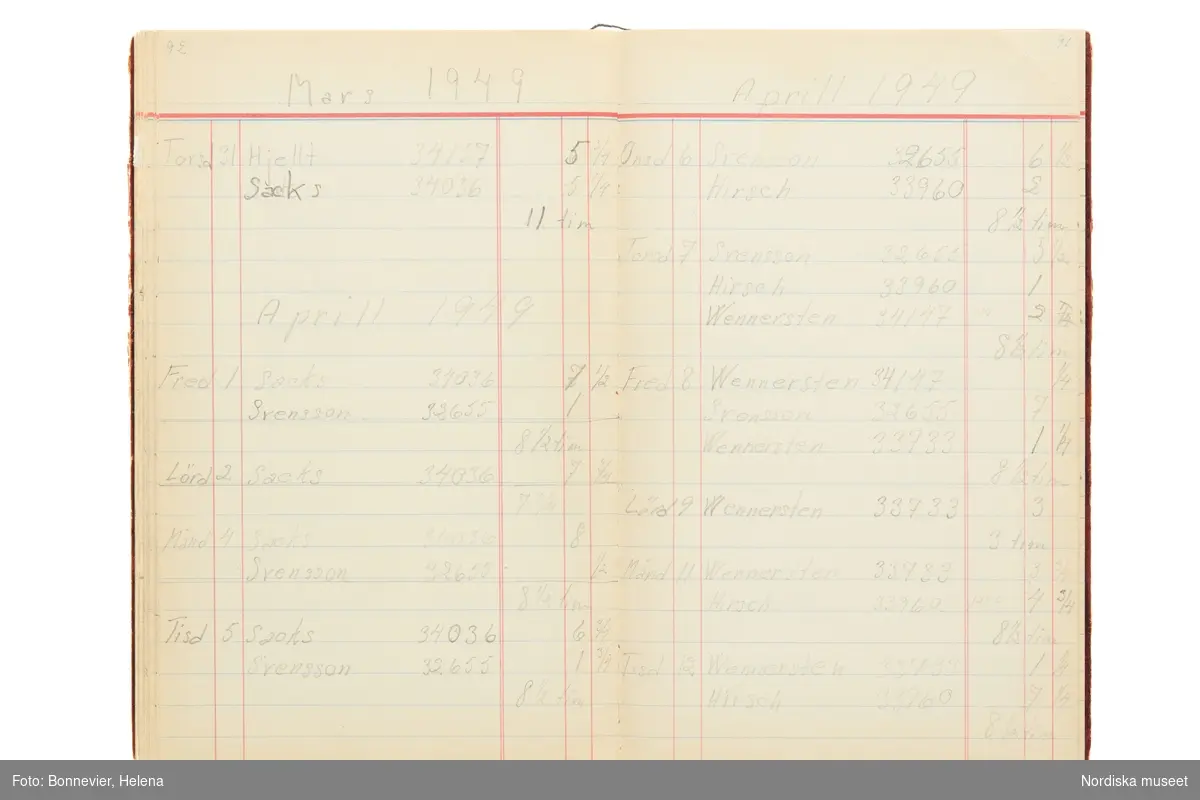 92
Mars 1949
Torsd 31 Hjellt 34127 5 3/4
Sacks 34036 5 1/4
11 tim
Aprill 1949
Fred 1 Sacks 34036 7 1/2
Svensson 32655 1
8 1/2 tim
Lörd 2 Sacks 34036 7 3/4
7 3/4
Månd 4 Sacks 34036 8
Svensson 32655 1/2
8 1/2 tim
Tisd 5 Sacks 34036 6 3/4
Svensson 32655 1 3/4
8 1/2 tim
Aprill 1949
Onsd 6 Svensson 32655 6 1/2
Hirsch 33960 2
8 1/2 timm
Torsd 7 Svensson 32655
Hirsch 33960 1
Wennersten 34147 2
8 1/2 tim
Fred 8 Wennersten 34147 1/4
Svensson 32655 7
Wennersten 33733 1 1/4
8 1/2 tim
Lörd 9 Wennersten 33733 3
3 tim
Månd 11 Wennersten 33733 3 3/4
Hirsch 33960 4 3/4
8 1/2 tim
Tisd 12 Wennersten 33733 1
Hirsch 33960 7
8 1/2 tim
Foto: Bonnevier, Helena
Nordiska museet